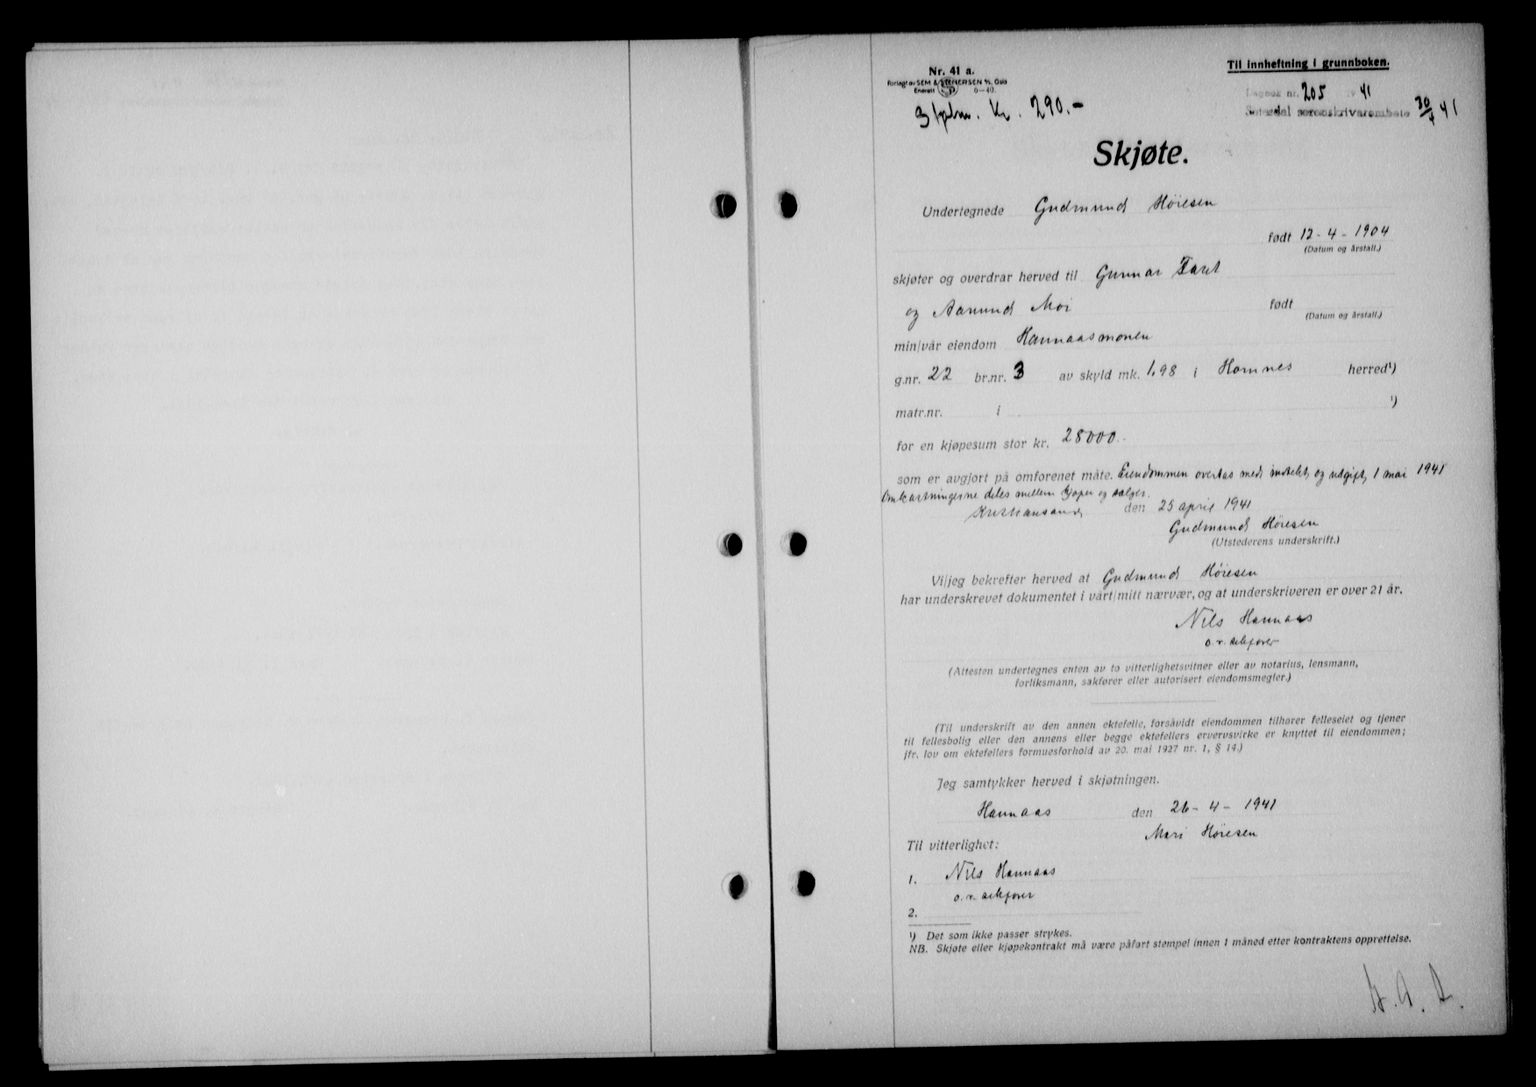 Nr. 41 a.
Forlagt av SEM & STENERSEN A/S, Oslo
Enerett 6—40.
Til innheftning i grunnboken.
Dagbok nr. 205 19 41
Setesdal sorenskriverembete 30/4 41
Kr. 290.-
Skjøte.
Undertegnede Gudmund Höiesen
født 12-4-1904
(Datum og årstall.)
skjøter og overdrar herved til Gunnar Faret
og Aanund Moi født
(Datum og årstall.)
min/vår eiendom Hannaasmonen
g.nr. 22 br.nr. 3 av skyld mk. 1,98 i Hornnes herred¹)
matr.nr. i ¹)
for en kjøpesum stor kr. 28000.-
som er avgjort på omforenet måte. Eiendommen overtas med inntekt, og utgift, 1 mai 1941
Omkostningerne deles mellem kjøper og selger.
Kristiansand, den 25 april 1941
Gudmund Höiesen
(Utstederens underskrift.)
Vi/jeg bekrefter herved at Gudmund Höiesen
har underskrevet dokumentet i vårt/mitt nærvær, og at underskriveren er over 21 år.
Nils Hannaas
o.r. sakfører
(Attesten undertegnes enten av to vitterlighetsvitner eller av notarius, lensmann,
forliksmann, sakfører eller autorisert eiendomsmegler.)
(Til underskrift av den annen ektefelle, forsåvidt eiendommen tilhører felleseiet og tjener
til fellesbolig eller den annens eller begge ektefellers ervervsvirke er knyttet til eiendommen;
jfr. lov om ektefellers formuesforhold av 20. mai 1927 nr. 1, § 14.)
Jeg samtykker herved i skjøtningen.
Hannaas den 26-4-1941
Mari Höiesen
Til vitterlighet:
1. Nils Hannaas
o.r. sakfører
2.
¹) Det som ikke passer strykes.
NB. Skjøte eller kjøpekontrakt må være påført stempel innen 1 måned etter kontraktens opprettelse.